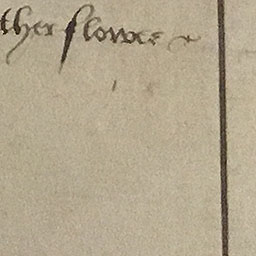 ther flower